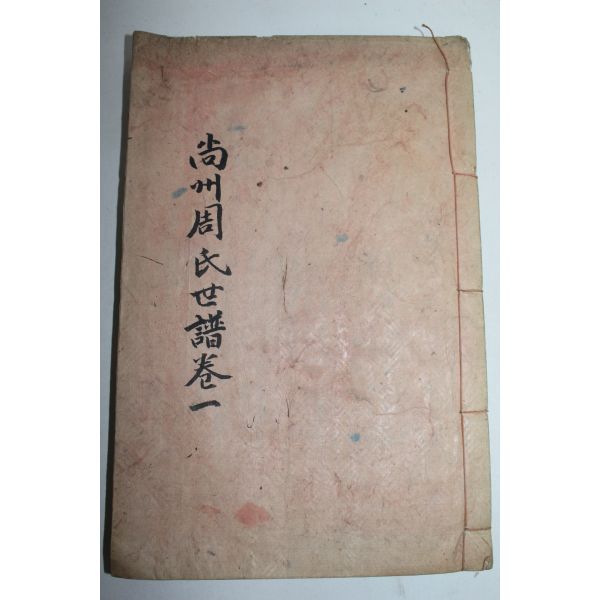 尙州周氏世譜卷一